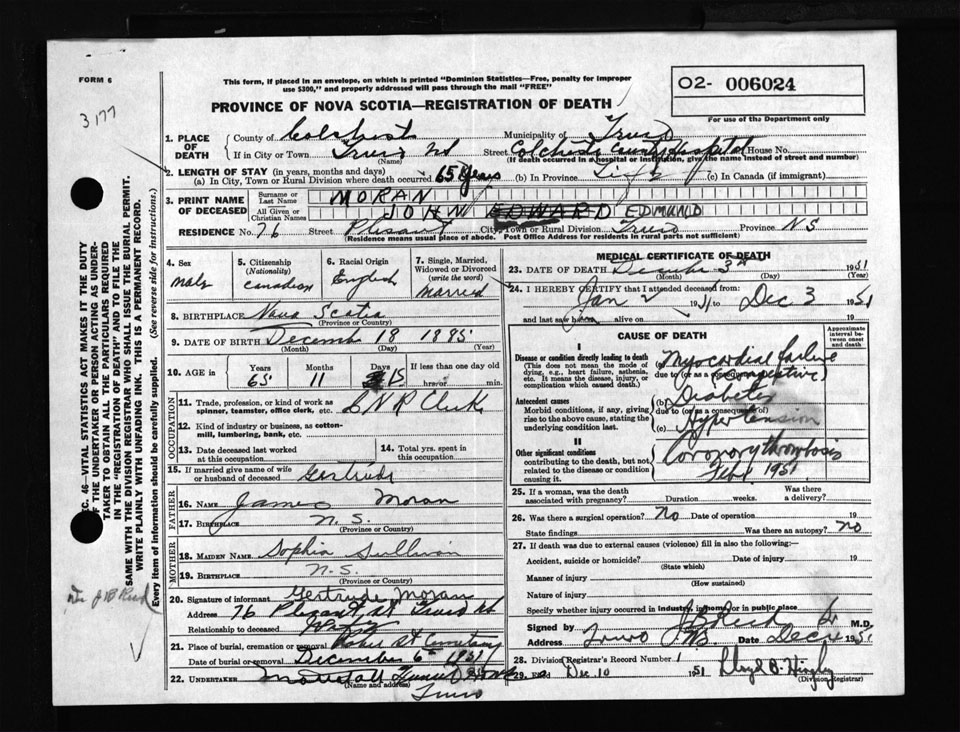 FORM 6
3177
This form, if placed in an envelope, on which is printed "Dominion Statistics—Free, penalty for improper
use $300," and properly addressed will pass through the mail "FREE"
O2- 006024
For use of the Department only
PROVINCE OF NOVA SCOTIA—REGISTRATION OF DEATH
1. PLACE OF DEATH { County of Colchester Municipality of Truro
If in City or Town Truro NS Street Colchester County Hospital House No.
(Name) (If death occurred in a hospital or institution, give the name instead of street and number)
2. LENGTH OF STAY (in years, months and days)
(a) In City, Town or Rural Division where death occurred 65 years (b) In Province Life (c) In Canada (if immigrant)
3. PRINT NAME OF DECEASED { Surname or Last Name MORAN
All Given or Christian Names JOHN EDWARD EDMUND
RESIDENCE No. 76 Street Plesant City, Town or Rural Division Truro Province N S
(Residence means usual place of abode. Post Office Address for residents in rural parts not sufficient)
4. Sex male
5. Citizenship (Nationality) Canadian
6. Racial Origin English
7. Single, Married, Widowed or Divorced (write the word) Married
8. BIRTHPLACE Nova Scotia
(Province or Country)
9. DATE OF BIRTH December 18 1885
(Month) (Day) (Year)
10. AGE in { Years 65 Months 11 Days 15 If less than one day old hrs. or min.
OCCUPATION
11. Trade, profession, or kind of work as spinner, teamster, office clerk, etc. C N R Clerk
12. Kind of industry or business, as cotton-mill, lumbering, bank, etc.
13. Date deceased last worked at this occupation
14. Total yrs. spent in this occupation
15. If married give name of wife or husband of deceased Gertrude
FATHER
16. NAME James Moran
17. BIRTHPLACE N. S.
(Province or Country)
MOTHER
18. MAIDEN NAME Sophia Sullivan
19. BIRTHPLACE N. S.
(Province or Country)
20. Signature of informant Gertrude Moran
Address 76 Plesant St Truro NS
Relationship to deceased Wife
21. Place of burial, cremation or removal Robie St Cemetary
Date of burial or removal December 6th 1951
22. UNDERTAKER
(Name and Address)
Truro
MEDICAL CERTIFICATE OF DEATH
23. DATE OF DEATH December 3rd 1951
(Month) (Day) (Year)
24. I HEREBY CERTIFY that I attended deceased from:
Jan 2 1951 to Dec 3 1951
and last saw h alive on 19
CAUSE OF DEATH
Approximate interval between onset and death
I
Disease or condition directly leading to death
(This does not mean the mode of dying, e.g., heart failure, asthenia, etc. It means the disease, injury, or complication which caused death.)
Myocardial failure
due to (or as a consequence of) (congestive)
Antecedent causes
Morbid conditions, if any, giving rise to the above cause, stating the underlying condition last.
(b) Diabetes
due to (or as a consequence of)
(c) Hypertension
II
Other significant conditions
contributing to the death, but not related to the disease or condition causing it.
Coronary thrombosis
Feb 1951
25. If a woman, was the death associated with pregnancy? Duration weeks. Was there a delivery?
26. Was there a surgical operation? No Date of operation 19
State findings Was there an autopsy? No
27. If death was due to external causes (violence) fill in also the following:—
Accident, suicide or homicide? Date of injury 19
(State which)
Manner of injury
(How sustained)
Nature of injury
Specify whether injury occurred in industry, in home, or in public place
Signed by J B Reid Dr M.D.
Address Truro N.S. Date Dec 1951
28. Division Registrar's Record Number 1
29. Filed Dec 10 1951 Lloyd B.
(Division Registrar)
SEC. 46—VITAL STATISTICS ACT MAKES IT THE DUTY
OF THE UNDERTAKER OR PERSON ACTING AS UNDER-
TAKER TO OBTAIN ALL THE PARTICULARS REQUIRED
IN THE "REGISTRATION OF DEATH" AND TO FILE THE
SAME WITH THE DIVISION REGISTRAR WHO SHALL ISSUE THE BURIAL PERMIT.
WRITE PLAINLY WITH UNFADING INK. THIS IS A PERMANENT RECORD.
Every item of information should be carefully supplied. (See reverse side for instructions.)
J B Reid